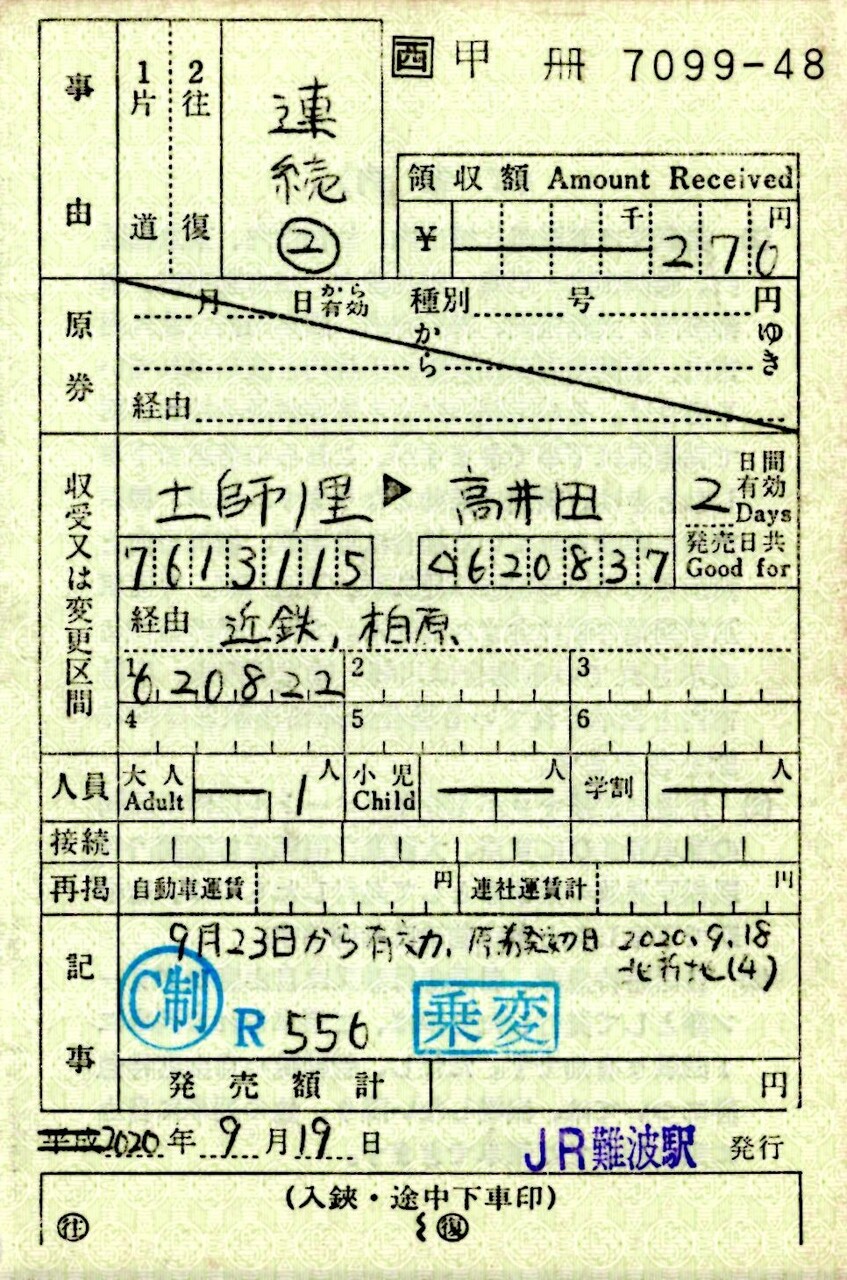 西 甲 册 7099-48
事由
1片道
2往復
連続②
領収額 Amount Received
¥ 千 270 円
原券
月 日から有効 種別 号 円
から ゆき
経由
収受又は変更区間
土師ノ里 ▶ 高井田
2 日間有効 Days
発売日共 Good for
7613115 4620837
経由 近鉄, 柏原、
1 620822 2 3
4 5 6
人員 大人 Adult 1人 小児 Child 人 学割 人
接続
再掲 自動車運賃 円 連社運賃計 円
記事
9月23日から有効, 原券発効日 2020.9.18
北新地(4)
C制 R 556 乗変
発売額計 円
平成2020年 9月19日 JR難波駅 発行
(入鋏・途中下車印)
往 復